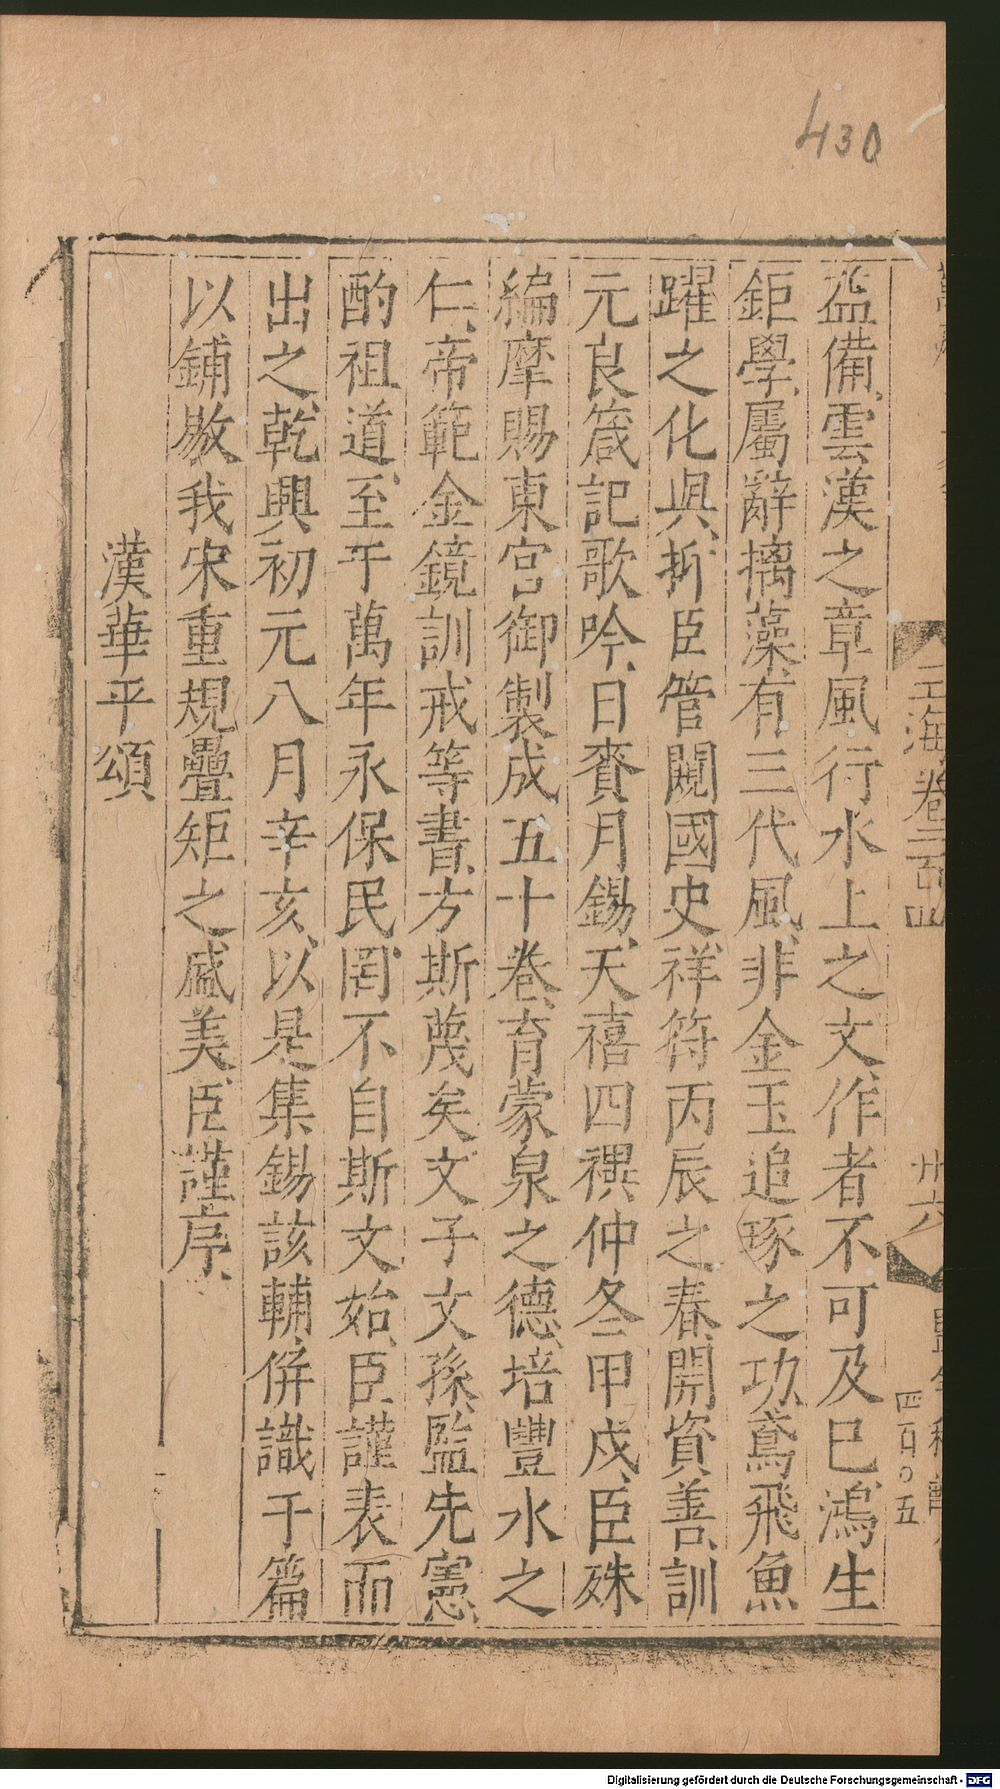 430
玉海卷二百四
卅六
四百〇五
益備雲漢之章風行水上之文作者不可及巳鴻生
鉅學屬辭摛藻有三代風非金玉追琢之功鳶飛魚
躍之化與折臣管闚國史祥符丙辰之春開資善訓
元良箴記歌吟日賚月錫天禧四禩仲冬甲戌臣殊
編摩賜東宮御製成五十卷育蒙泉之德培豐水之
仁帝範金鏡訓戒等書方斯蔑矣文子文孫監先憲
酌祖道至于萬年永保民罔不自斯文始臣謹表而
出之乾興初元八月辛亥以是集錫該輔併識于篇
以鋪敭我宋重規疊矩之盛美臣謹序
漢華平頌
Digitalisierung gefördert durch die Deutsche Forschungsgemeinschaft - DFG